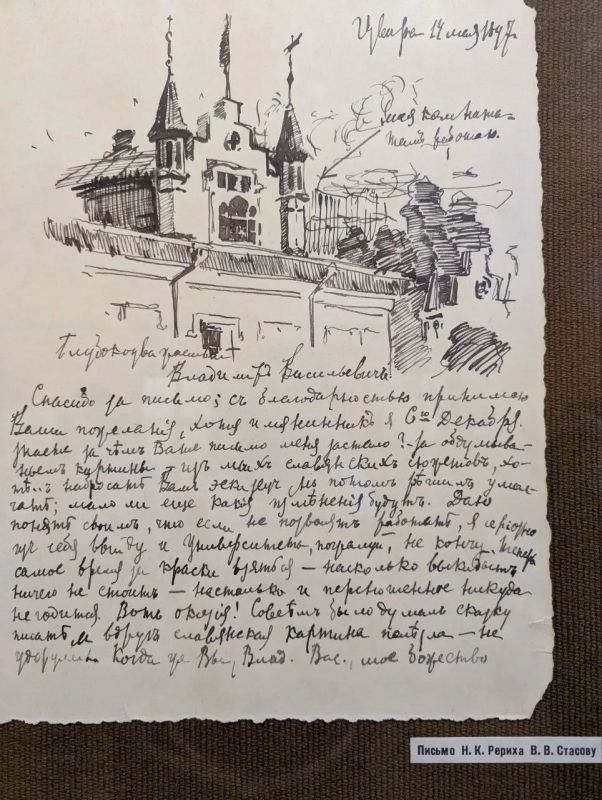 Извара 14 мая 1897.
Моя комната
тамъ работаю.
Глубокоуважаемый
Владимiръ Васильевичъ.
Спасибо за письмо; съ благодарностью принимаю
Ваши пожеланiя, хотя имянинникъ я 6го Декабря.
за чѣмъ Ваше письмо меня застало? - за обдумыва-
ньемъ картины - изъ моихъ славянскихъ сюжетовъ, хо-
тѣлъ набросать Вамъ эскизъ но потомъ рѣшилъ умол-
чать; мало ли еще какiя измѣненiя будутъ. Даю
понять своимъ, что если не позволятъ работать, я серiозно
изъ себя выйду и Университетъ, пожалуй, не кончу. Теперь
самое время за краски взяться — насколько выкидышъ
ничего не стоитъ — настолько и переношенное никуда
не годится. Вотъ оказiя! Совсѣмъ было думалъ сказку
писать и вдругъ славянская картина полѣзла — не
удержишь. Когда же Вы, Влад. Вас., мое божество
Письмо Н. К. Рериха В. В. Стасову